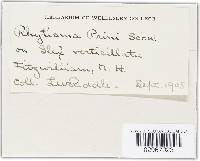 HERBARIUM OF WELLESLEY COLLEGE
Rhytisma Prini Schw.
on Ilex verticillata
Fitzwilliam, N. H.
Coll. Sept. 1905